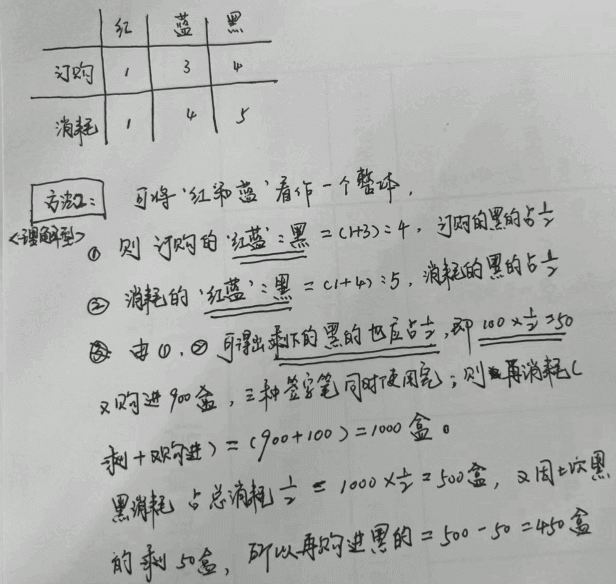 红 蓝 黑
订购 1 3 4
消耗 1 4 5
方法2: 可将'红和蓝'看作一个整体,
<理解型> ① 则 订购的'红蓝':黑 = (1+3):4, 订购的黑的占1/2
② 消耗的'红蓝':黑 = (1+4):5, 消耗的黑的占1/2
③ 由①,② 可得出剩下的黑的也应占1/2, 即 100×1/2=50
又购进900盒, 三种签字笔同时使用完; 则再消耗(
剩+又购进) = (900+100) = 1000盒。
黑消耗 占总消耗1/2 = 1000×1/2=500盒, 又因上次黑
的剩50盒, 所以再购进黑的 = 500-50=450盒